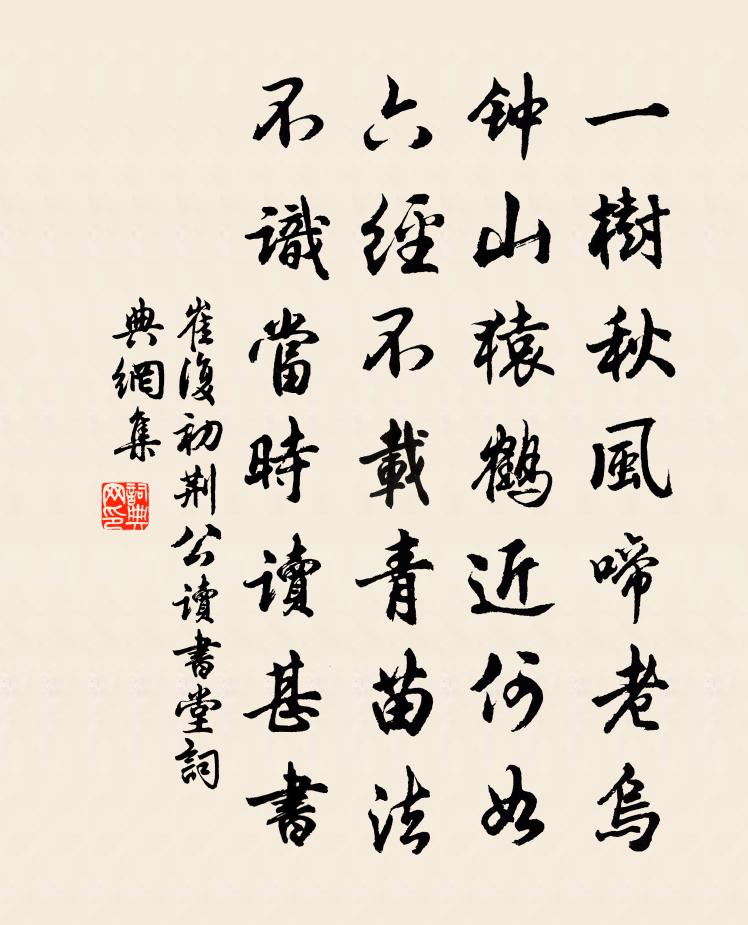 一樹秋風啼老烏
钟山猿鶴近何如
六經不載青苗法
不識當時讀甚書
崔復初荆公讀書堂詞
典網集
詞典
网印